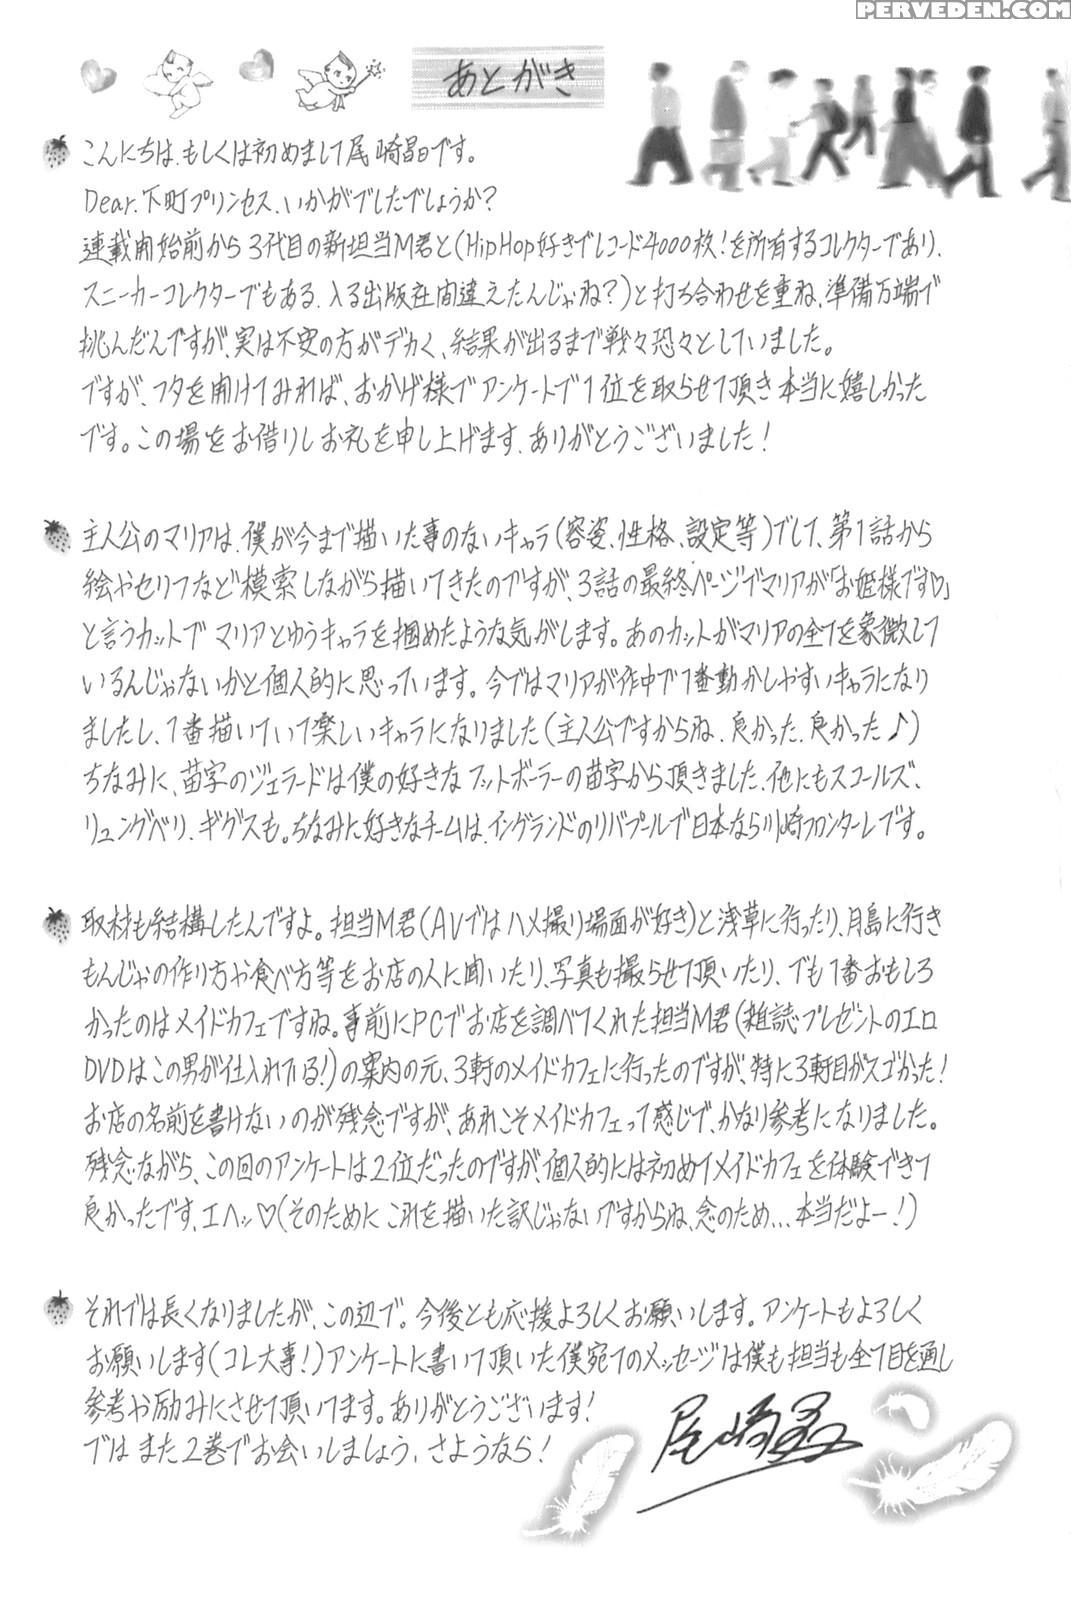 PERVEDEN.COM
あとがき
こんにちは、もしくは初めまして尾崎晶です。
Dear.下町プリンセス、いかがでしたでしょうか?
連載開始前から3代目の新担当M君と(HipHop好きでレコード4000枚!を所有するコレクターであり、
スニーカーコレクターでもある、入る出版社間違えたんじゃね?)と打ち合わせを重ね、準備万端で
挑んだんですが、実は不安の方がデカく、結果が出るまで戦々恐々としていました。
ですが、フタを開けてみれば、おかげ様でアンケートで1位を取らせて頂き本当に嬉しかった
です。この場をお借りしお礼を申し上げます、ありがとうございました!
主人公のマリアは、僕が今まで描いた事のないキャラ(容姿、性格、設定等)でして、第1話から
絵やセリフなど模索しながら描いてきたのですが、3話の最終ページでマリアが「お姫様です♡」
と言うカットでマリアとゆうキャラを掴めたような気がします。あのカットがマリアの全てを象徴して
いるんじゃないかと個人的に思っています。今ではマリアが作中で1番動かしやすいキャラになり
ましたし、1番描いていて楽しいキャラになりました(主人公ですからね、良かった、良かった♪)
ちなみに、苗字のジェラードは僕の好きなフットボーラーの苗字から頂きました、他にもスコールズ、
リュングベリ、ギグスも。ちなみに好きなチームは、イングランドのリバプールで日本なら川崎フロンターレです。
取材も結構したんですよ。担当M君(AVではハメ撮り場面が好き)と浅草に行ったり、月島に行き
もんじゃの作り方や食べ方等をお店の人に聞いたり、写真も撮らせて頂いたり、でも1番おもしろ
かったのはメイドカフェですね。事前にPCでお店を調べてくれた担当M君(雑誌プレゼントのエロ
DVDはこの男が仕入れている!)の案内の元、3軒のメイドカフェに行ったのですが、特に3軒目がスゴかった!
お店の名前を書けないのが残念ですが、あれこそメイドカフェって感じで、かなり参考になりました。
残念ながら、この回のアンケートは2位だったのですが、個人的には初めてメイドカフェを体験できて
良かったです、エヘッ♡(そのためにこれを描いた訳じゃないですからね、念のため...本当だよー!)
それでは長くなりましたが、この辺で。今後とも応援よろしくお願いします。アンケートもよろしく
お願いします(コレ大事!)アンケートに書いて頂いた僕宛てのメッセージは僕も担当も全て目を通し
参考や励みにさせて頂いてます。ありがとうございます!
ではまた2巻でお会いしましょう、さようなら!
尾崎晶